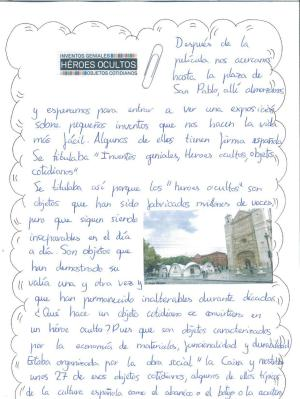 INVENTOS GENIALES
HÉROES OCULTOS
OBJETOS COTIDIANOS
Después de la
película nos acercamos
hasta la plaza de
San Pablo, allí almorzamos
y esperamos para entrar a ver una exposición
sobre pequeños inventos que nos hacen la vida
más fácil. Algunos de ellos tienen firma española.
Se titulaba "Inventos geniales, Heroes ocultos, objetos
cotidianos".
Se titulaba así porque los "heroes ocultos" son
objetos que han sido fabricados millones de veces,
pero que siguen siendo
inseparables en el día
a día. Son objetos que
han demostrado su
valía una y otra vez y
que han permanecido inalterables durante décadas.
¿Qué hace un objeto cotidiano se convierta en
un héroe oculto? Pues que son objetos caracterizados
por la economía de materiales, funcionalidad y durabilidad
Estaba organizada por la obra social "la Caixa y mostraba
unos 27 de esos objetos cotidianos, algunos de ellos típicos
de la cultura española como el abanico o el botijo o la aceitera